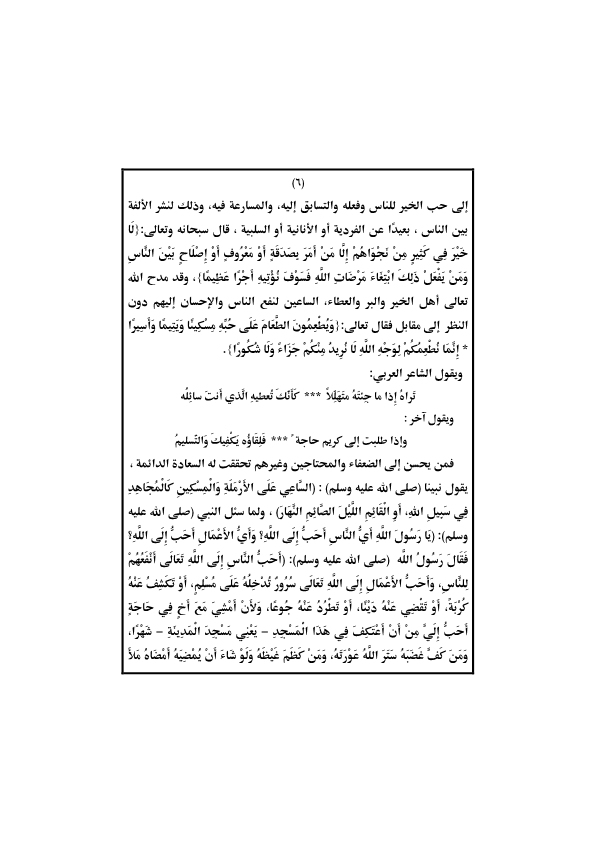 (٦)
إلى حب الخير للناس وفعله والتسابق إليه، والمسارعة فيه، وذلك لنشر الألفة
بين الناس ، بعيدًا عن الفردية أو الأنانية أو السلبية ، قال سبحانه وتعالى:{لَا
خَيْرَ فِي كَثِيرٍ مِنْ نَجْوَاهُمْ إِلَّا مَنْ أَمَرَ بِصَدَقَةٍ أَوْ مَعْرُوفٍ أَوْ إِصْلَاحٍ بَيْنَ النَّاسِ
وَمَنْ يَفْعَلْ ذَلِكَ ابْتِغَاءَ مَرْضَاتِ اللَّهِ فَسَوْفَ نُؤْتِيهِ أَجْرًا عَظِيمًا}، وقد مدح الله
تعالى أهل الخير والبر والعطاء، الساعين لنفع الناس والإحسان إليهم دون
النظر إلى مقابل فقال تعالى:{وَيُطْعِمُونَ الطَّعَامَ عَلَى حُبِّهِ مِسْكِينًا وَيَتِيمًا وَأَسِيرًا
* إِنَّمَا نُطْعِمُكُمْ لِوَجْهِ اللَّهِ لَا نُرِيدُ مِنْكُمْ جَزَاءً وَلَا شُكُورًا}.
ويقول الشاعر العربي:
تَراهُ إِذا ما جئتَهُ مُتَهَلِّلاً *** كَأَنَّكَ تُعطيهِ الَّذي أَنتَ سائِلُه
ويقول آخر :
وإذا طلبت إلى كريم حاجة ً *** فَلِقَاؤُه يَكْفِيكَ وَالتَّسليمُ
فمن يحسن إلى الضعفاء والمحتاجين وغيرهم تحققت له السعادة الدائمة ،
يقول نبينا (صلى الله عليه وسلم) : (السَّاعِي عَلَى الأَرْمَلَةِ وَالْمِسْكِينِ كَالْمُجَاهِدِ
فِي سَبِيلِ اللهِ، أَوِ الْقَائِمِ اللَّيْلَ الصَّائِمِ النَّهَارَ) ، ولما سئل النبي (صلى الله عليه
وسلم): (يَا رَسُولَ اللَّهِ أَيُّ النَّاسِ أَحَبُّ إِلَى اللَّهِ؟ وَأَيُّ الأَعْمَالِ أَحَبُّ إِلَى اللَّهِ؟
فَقَالَ رَسُولُ اللَّهِ (صلى الله عليه وسلم): (أَحَبُّ النَّاسِ إِلَى اللَّهِ تَعَالَى أَنْفَعُهُمْ
لِلنَّاسِ، وَأَحَبُّ الأَعْمَالِ إِلَى اللَّهِ تَعَالَى سُرُورٌ تُدْخِلُهُ عَلَى مُسْلِمٍ، أَوْ تَكْشِفُ عَنْهُ
كُرْبَةً، أَوْ تَقْضِي عَنْهُ دَيْنًا، أَوْ تَطْرُدُ عَنْهُ جُوعًا، وَلأَنْ أَمْشِيَ مَعَ أَخٍ فِي حَاجَةٍ
أَحَبُّ إِلَيَّ مِنْ أَنْ أَعْتَكِفَ فِي هَذَا الْمَسْجِدِ – يَعْنِي مَسْجِدَ الْمَدِينَةِ – شَهْرًا،
وَمَنَ كَفَّ غَضَبَهُ سَتَرَ اللَّهُ عَوْرَتَهُ، وَمَنْ كَظَمَ غَيْظَهُ وَلَوْ شَاءَ أَنْ يُمْضِيَهُ أَمْضَاهُ مَلأَ